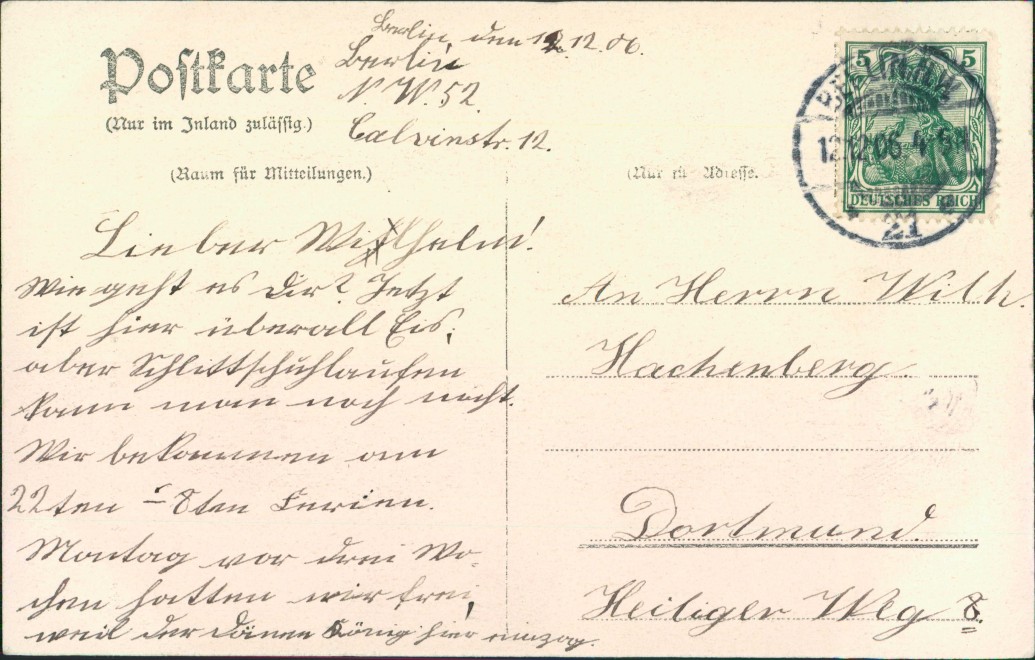 Berlin den 12.12.06.
Berlin
N.W.52.
Calvinstr. 12.
Postkarte
(Nur im Inland zulässig.)
(Raum für Mitteilungen.)
(Nur für Adresse.
5 5
DEUTSCHES REICH
BERLIN N.W.
12.12.06 4-5N
21
Lieber Wilhelm!
Wie geht es Dir? Jetzt
ist hier überall Eis,
aber Schlittschuhlaufen
kann man noch nicht.
Wir bekommen am
22ten - 8ten Ferien.
Montag vor drei Wo-
chen hatten wir frei,
weil der Dänen König hier einzog.
An Herrn Wilh.
Hachenberg
Dortmund.
Heiliger Weg 8.